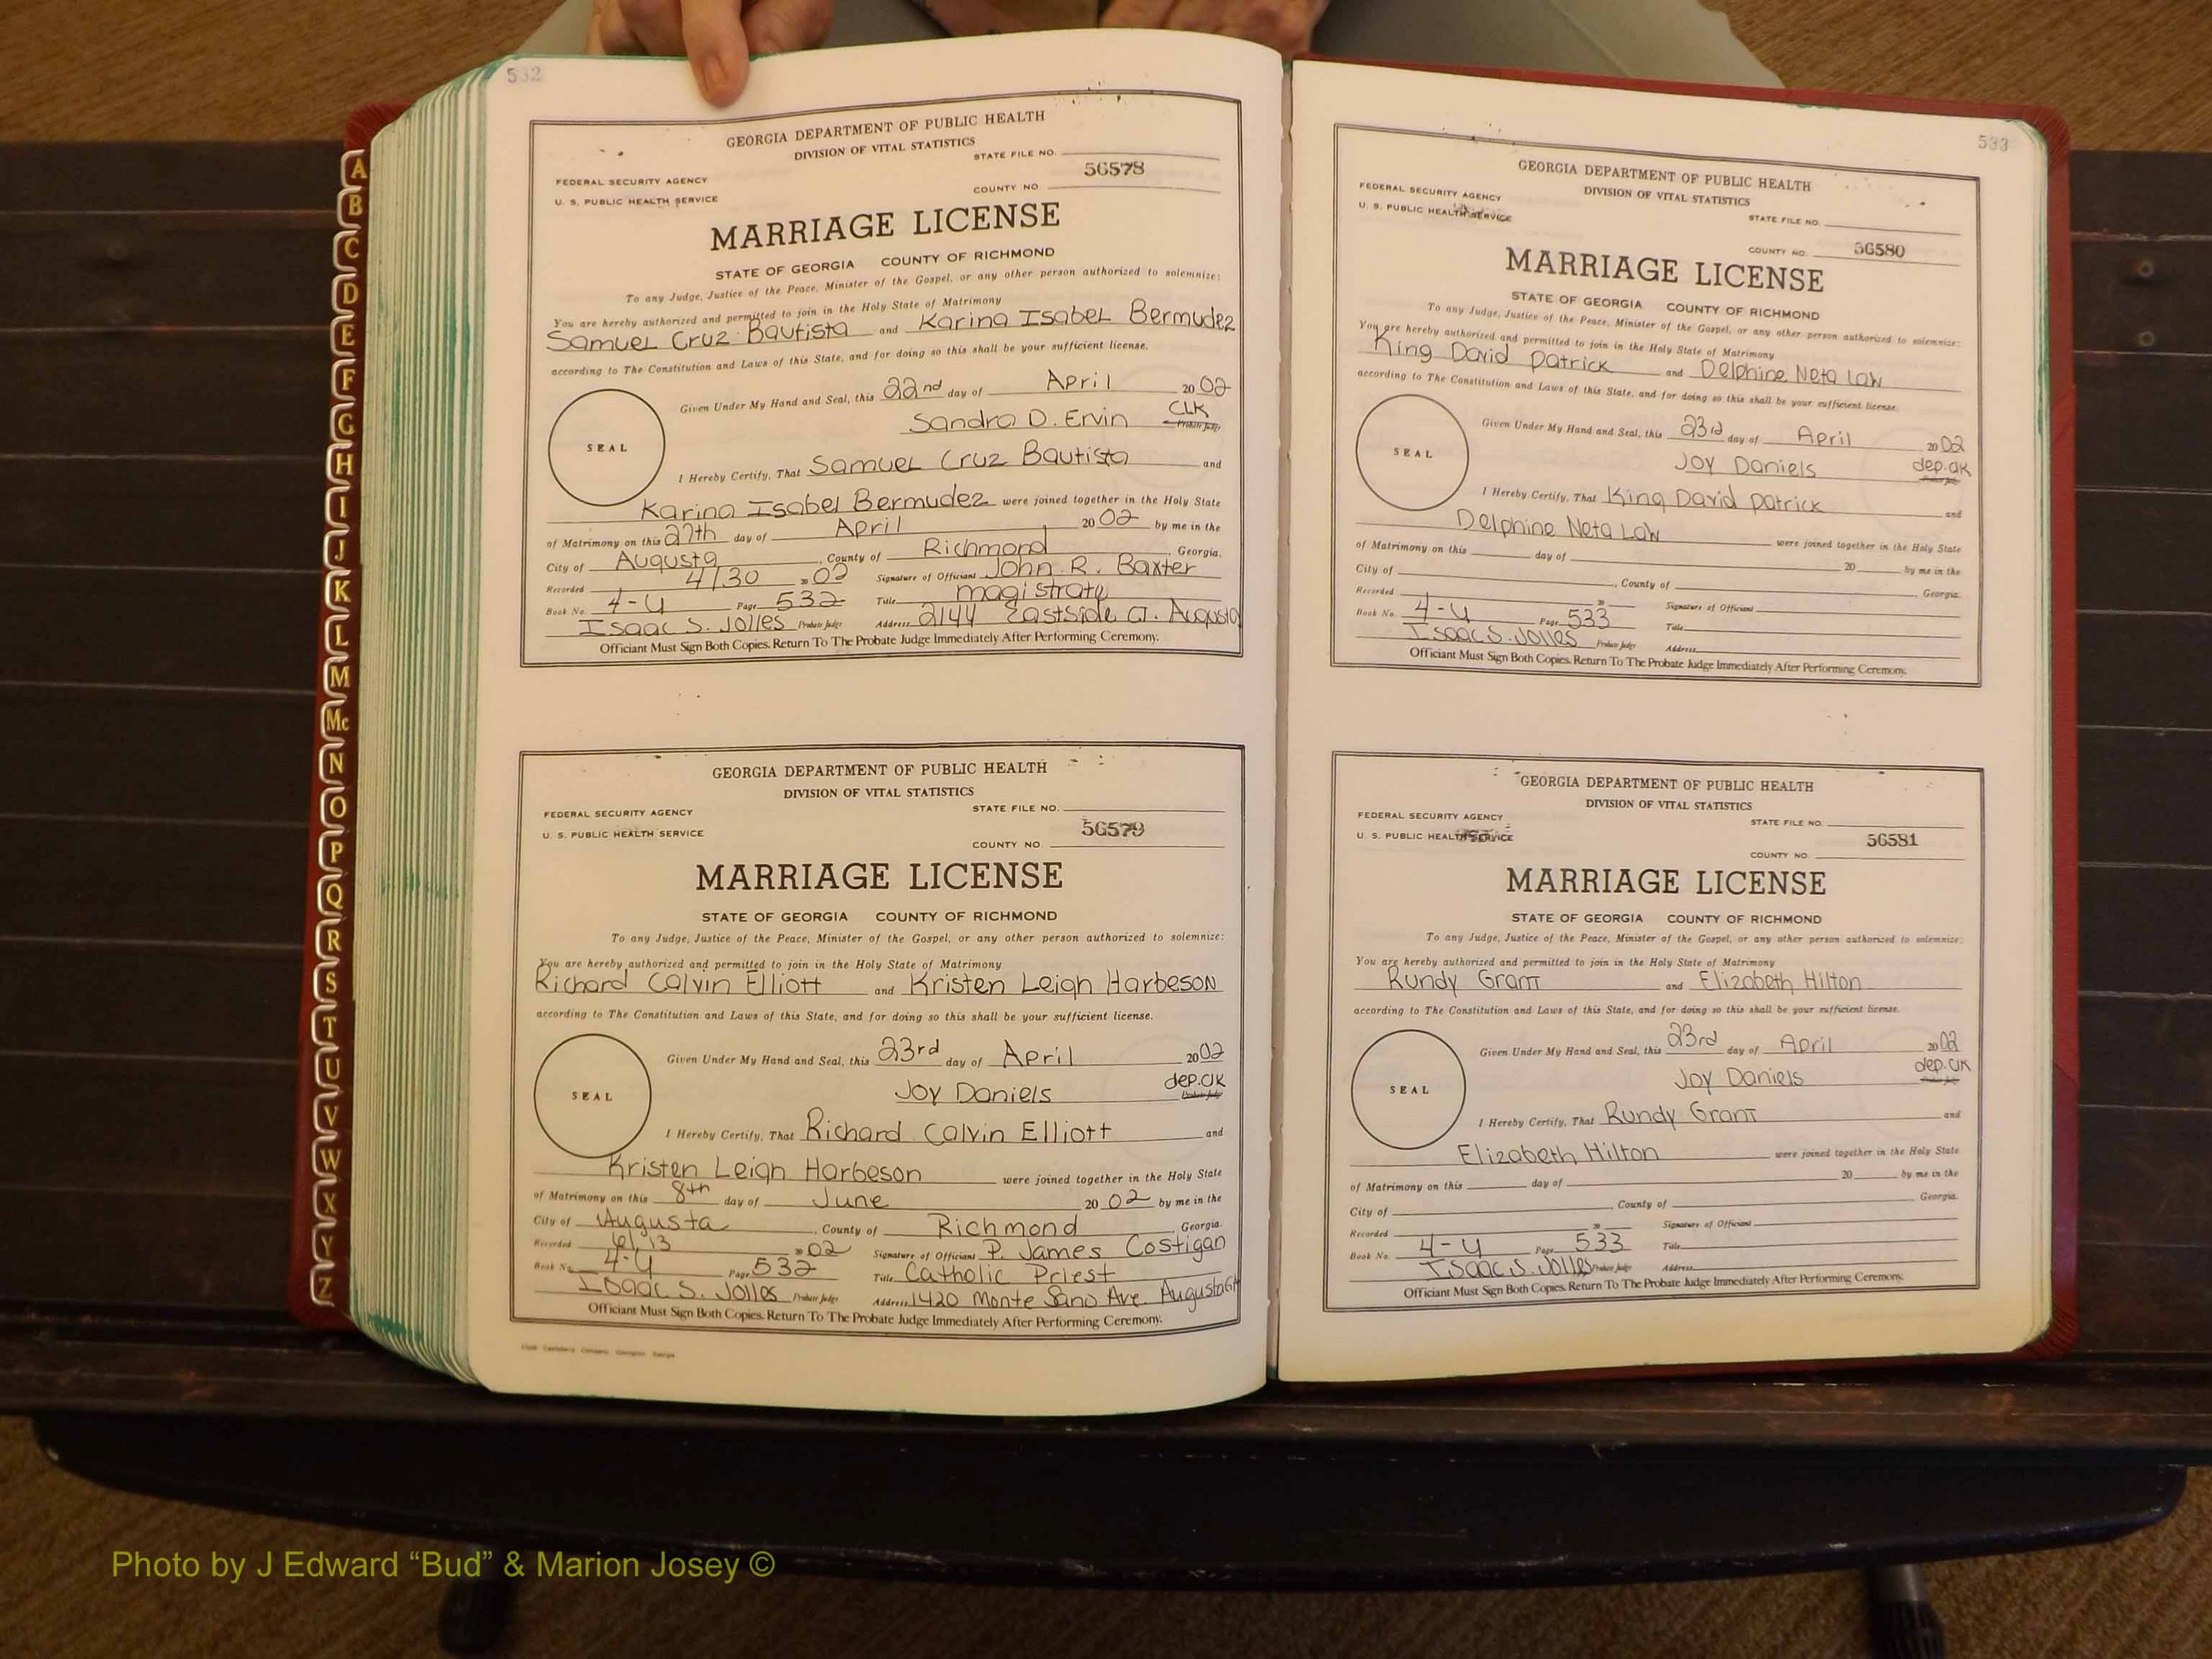 532
GEORGIA DEPARTMENT OF PUBLIC HEALTH
DIVISION OF VITAL STATISTICS
STATE FILE NO.
56578
FEDERAL SECURITY AGENCY
U. S. PUBLIC HEALTH SERVICE
COUNTY NO.
MARRIAGE LICENSE
STATE OF GEORGIA COUNTY OF RICHMOND
To any Judge, Justice of the Peace, Minister of the Gospel, or any other person authorized to solemnize:
You are hereby authorized and permitted to join in the Holy State of Matrimony
Samuel Cruz Bautista and Karina Isabel Bermudez
according to The Constitution and Laws of this State, and for doing so this shall be your sufficient license.
Given Under My Hand and Seal, this 22nd day of April 20 02
Sandra D. Ervin CLK Probate Judge
SEAL
I Hereby Certify, That Samuel Cruz Bautista and
Karina Isabel Bermudez were joined together in the Holy State
of Matrimony on this 27th day of April 20 02 by me in the
City of Augusta, County of Richmond, Georgia.
Recorded 4/30 20 02 Signature of Officiant John R. Baxter
Book No. 4-U Page 532 Title magistrate
Isaac S. Jolles Probate Judge Address 2144 Eastside CT. Augusta
Officiant Must Sign Both Copies. Return To The Probate Judge Immediately After Performing Ceremony.
GEORGIA DEPARTMENT OF PUBLIC HEALTH
DIVISION OF VITAL STATISTICS
FEDERAL SECURITY AGENCY STATE FILE NO.
U. S. PUBLIC HEALTH SERVICE 56579
COUNTY NO.
MARRIAGE LICENSE
STATE OF GEORGIA COUNTY OF RICHMOND
To any Judge, Justice of the Peace, Minister of the Gospel, or any other person authorized to solemnize:
You are hereby authorized and permitted to join in the Holy State of Matrimony
Richard Calvin Elliott and Kristen Leigh Harbeson
according to The Constitution and Laws of this State, and for doing so this shall be your sufficient license.
Given Under My Hand and Seal, this 23rd day of April 20 02
Joy Daniels dep.clk Probate Judge
SEAL
I Hereby Certify, That Richard Calvin Elliott and
Kristen Leigh Harbeson were joined together in the Holy State
of Matrimony on this 8th day of June 20 02 by me in the
City of Augusta, County of Richmond, Georgia.
Recorded 6/13 20 02 Signature of Officiant P. James Costigan
Book No. 4-U Page 532 Title Catholic Priest
Isaac S. Jolles Probate Judge Address 1420 Monte Sano Ave. Augusta GA
Officiant Must Sign Both Copies. Return To The Probate Judge Immediately After Performing Ceremony.
533
GEORGIA DEPARTMENT OF PUBLIC HEALTH
DIVISION OF VITAL STATISTICS
FEDERAL SECURITY AGENCY
U. S. PUBLIC HEALTH SERVICE
STATE FILE NO.
COUNTY NO. 56580
MARRIAGE LICENSE
STATE OF GEORGIA COUNTY OF RICHMOND
To any Judge, Justice of the Peace, Minister of the Gospel, or any other person authorized to solemnize:
You are hereby authorized and permitted to join in the Holy State of Matrimony
King David Patrick and Delphine Neta Law
according to The Constitution and Laws of this State, and for doing so this shall be your sufficient license.
Given Under My Hand and Seal, this 23rd day of April 20 02
Joy Daniels dep.clk Probate Judge
SEAL
I Hereby Certify, That King David Patrick and
Delphine Neta Law were joined together in the Holy State
of Matrimony on this day of 20 by me in the
City of , County of , Georgia.
Recorded 20 Signature of Officiant
Book No. 4-U Page 533 Title
Isaac S. Jolles Probate Judge Address
Officiant Must Sign Both Copies. Return To The Probate Judge Immediately After Performing Ceremony.
GEORGIA DEPARTMENT OF PUBLIC HEALTH
DIVISION OF VITAL STATISTICS
FEDERAL SECURITY AGENCY STATE FILE NO.
U. S. PUBLIC HEALTH SERVICE 56581
COUNTY NO.
MARRIAGE LICENSE
STATE OF GEORGIA COUNTY OF RICHMOND
To any Judge, Justice of the Peace, Minister of the Gospel, or any other person authorized to solemnize:
You are hereby authorized and permitted to join in the Holy State of Matrimony
Rundy Grant and Elizabeth Hilton
according to The Constitution and Laws of this State, and for doing so this shall be your sufficient license.
Given Under My Hand and Seal, this 23rd day of April 20 02
Joy Daniels dep.clk Probate Judge
SEAL
I Hereby Certify, That Rundy Grant and
Elizabeth Hilton were joined together in the Holy State
of Matrimony on this day of 20 by me in the
City of , County of Georgia.
Recorded 20 Signature of Officiant
Book No. 4-U Page 533 Title
Isaac S. Jolles Probate Judge Address
Officiant Must Sign Both Copies. Return To The Probate Judge Immediately After Performing Ceremony.
A
B
C
D
E
F
G
H
I
J
K
L
M
Mc
N
O
P
Q
R
S
T
U
V
W
X
Y
Z
Photo by J Edward “Bud” & Marion Josey ©